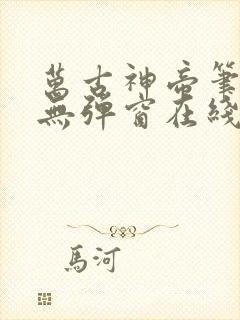 萬古神帝筆
無彈窗在綫
馬河